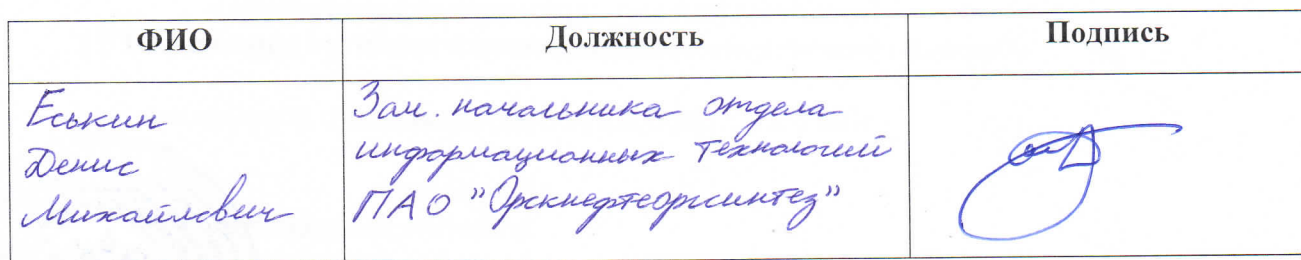 ФИО Должность Подпись
Еськин
Денис
Михайлович
Зам. начальника отдела
информационных технологий
ПАО "Орскнефтеоргсинтез"